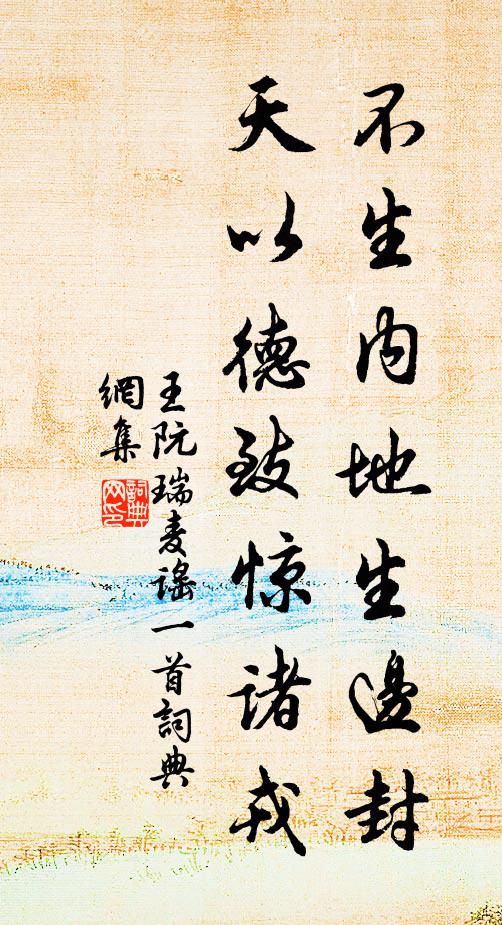 不生内地生邊封
天以德致惊诸戎
王阮瑞麦谣一首詞典
網集
詞典
网印